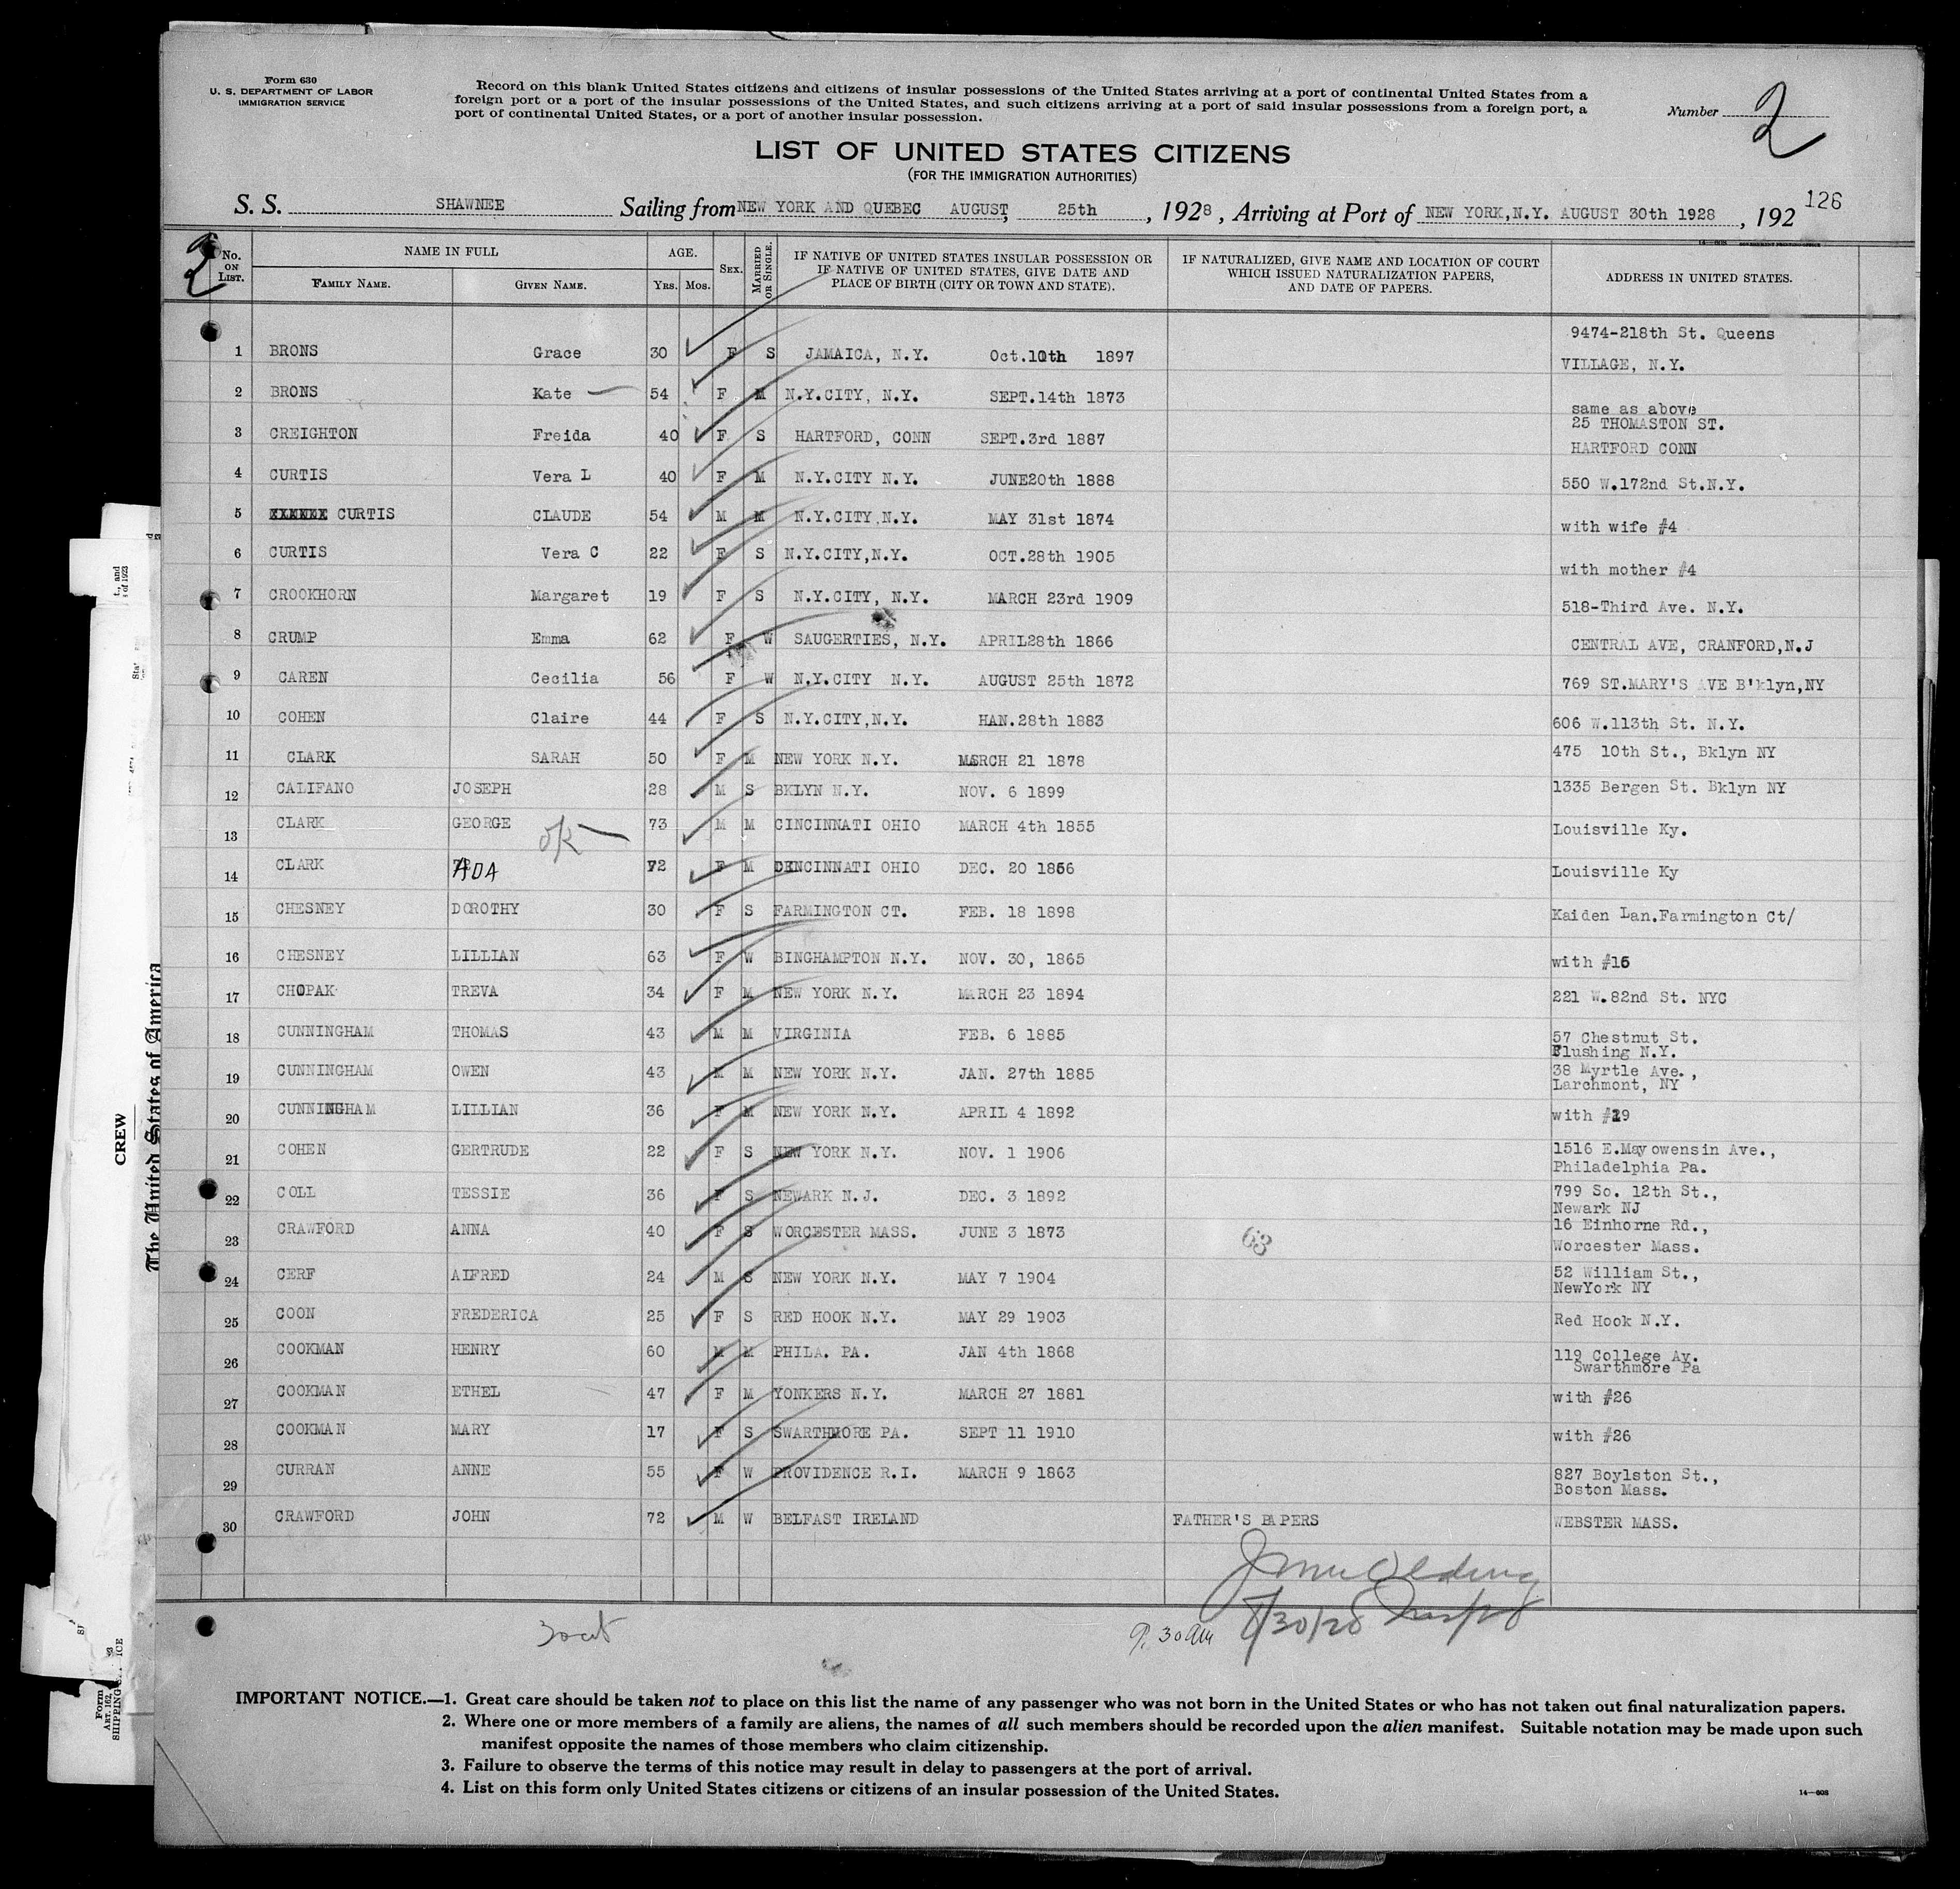 Form 630
U. S. DEPARTMENT OF LABOR
IMMIGRATION SERVICE
Record on this blank United States citizens and citizens of insular possessions of the United States arriving at a port of continental United States from a
foreign port or a port of the insular possessions of the United States, and such citizens arriving at a port of said insular possessions from a foreign port, a
port of continental United States, or a port of another insular possession.
Number 2
LIST OF UNITED STATES CITIZENS
(FOR THE IMMIGRATION AUTHORITIES)
S. S. SHAWNEE Sailing from NEW YORK AND QUEBEC AUGUST, 25th, 1928, Arriving at Port of NEW YORK,N.Y. AUGUST 30th 1928, 192 126
2
No. ON LIST. NAME IN FULL FAMILY NAME. GIVEN NAME. AGE. Yrs. Mos. SEX. MARRIED OR SINGLE. IF NATIVE OF UNITED STATES INSULAR POSSESSION OR IF NATIVE OF UNITED STATES, GIVE DATE AND PLACE OF BIRTH (CITY OR TOWN AND STATE). IF NATURALIZED, GIVE NAME AND LOCATION OF COURT WHICH ISSUED NATURALIZATION PAPERS, AND DATE OF PAPERS. ADDRESS IN UNITED STATES.
1 BRONS Grace 30 F S JAMAICA, N.Y. Oct.10th 1897 9474-218th St. Queens
VILLAGE, N.Y.
2 BRONS Kate 54 F M N.Y.CITY, N.Y. SEPT.14th 1873 same as above
3 CREIGHTON Freida 40 F S HARTFORD, CONN SEPT.3rd 1887 25 THOMASTON ST.
HARTFORD CONN
4 CURTIS Vera L 40 F M N.Y.CITY N.Y. JUNE20th 1888 550 W.172nd St.N.Y.
5 CURTIS CLAUDE 54 M M N.Y.CITY,N.Y. MAY 31st 1874 with wife #4
6 CURTIS Vera C 22 F S N.Y.CITY,N.Y. OCT.28th 1905 with mother #4
7 CROOKHORN Margaret 19 F S N.Y.CITY, N.Y. MARCH 23rd 1909 518-Third Ave. N.Y.
8 CRUMP Emma 62 F W SAUGERTIES, N.Y. APRIL28th 1866 CENTRAL AVE, CRANFORD,N.J
9 CAREN Cecilia 56 F W N.Y.CITY N.Y. AUGUST 25th 1872 769 ST.MARY'S AVE B'klyn,NY
10 COHEN Claire 44 F S N.Y.CITY,N.Y. HAN.28th 1883 606 W.113th St. N.Y.
11 CLARK SARAH 50 F M NEW YORK N.Y. MARCH 21 1878 475 10th St., Bklyn NY
12 CALIFANO JOSEPH 28 M S BKLYN N.Y. NOV. 6 1899 1335 Bergen St. Bklyn NY
13 CLARK GEORGE ok 73 M M CINCINNATI OHIO MARCH 4th 1855 Louisville Ky.
14 CLARK ADA 72 F M CINCINNATI OHIO DEC. 20 1856 Louisville Ky
15 CHESNEY DOROTHY 30 F S FARMINGTON CT. FEB. 18 1898 Kaiden Lan.Farmington Ct/
16 CHESNEY LILLIAN 63 F W BINGHAMPTON N.Y. NOV. 30, 1865 with #15
17 CHOPAK TREVA 34 F M NEW YORK N.Y. MARCH 23 1894 221 W.82nd St. NYC
18 CUNNINGHAM THOMAS 43 M M VIRGINIA FEB. 6 1885 57 Chestnut St.
Flushing N.Y.
19 CUNNINGHAM OWEN 43 M M NEW YORK N.Y. JAN. 27th 1885 38 Myrtle Ave.,
Larchmont, NY
20 CUNNINGHAM LILLIAN 36 F M NEW YORK N.Y. APRIL 4 1892 with #19
21 COHEN GERTRUDE 22 F S NEW YORK N.Y. NOV. 1 1906 1516 E.Mayowensin Ave.,
Philadelphia Pa.
22 COLL TESSIE 36 F S NEWARK N.J. DEC. 3 1892 799 So. 12th St.,
Newark NJ
23 CRAWFORD ANNA 40 F S WORCESTER MASS. JUNE 3 1873 63 16 Einhorne Rd.,
Worcester Mass.
24 CERF ALFRED 24 M S NEW YORK N.Y. MAY 7 1904 52 William St.,
NewYork NY
25 COON FREDERICA 25 F S RED HOOK N.Y. MAY 29 1903 Red Hook N.Y.
26 COOKMAN HENRY 60 M M PHILA. PA. JAN 4th 1868 119 College Av.
Swarthmore Pa
27 COOKMAN ETHEL 47 F M YONKERS N.Y. MARCH 27 1881 with #26
28 COOKMAN MARY 17 F S SWARTHMORE PA. SEPT 11 1910 with #26
29 CURRAN ANNE 55 F W PROVIDENCE R.I. MARCH 9 1863 827 Boylston St.,
Boston Mass.
30 CRAWFORD JOHN 72 M W BELFAST IRELAND FATHER'S PAPERS WEBSTER MASS.
8/30/28
9.30am
IMPORTANT NOTICE.—1. Great care should be taken not to place on this list the name of any passenger who was not born in the United States or who has not taken out final naturalization papers.
2. Where one or more members of a family are aliens, the names of all such members should be recorded upon the alien manifest. Suitable notation may be made upon such
manifest opposite the names of those members who claim citizenship.
3. Failure to observe the terms of this notice may result in delay to passengers at the port of arrival.
4. List on this form only United States citizens or citizens of an insular possession of the United States.
14—608
The United States of America
CREW